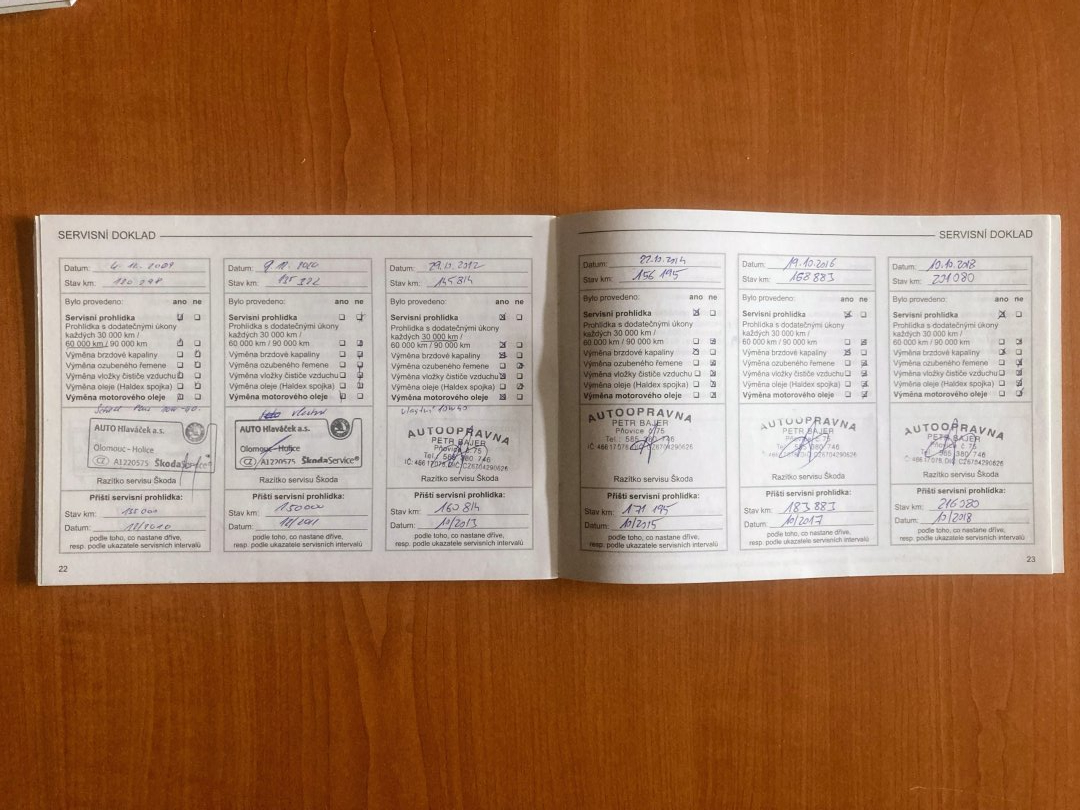 SERVISNÍ DOKLAD
Datum: 4. 12. 2009
Stav km: 120 298
Bylo provedeno: ano ne
Servisní prohlídka
Prohlídka s dodatečnými úkony
každých 30 000 km /
60 000 km / 90 000 km
Výměna brzdové kapaliny
Výměna ozubeného řemene
Výměna vložky čističe vzduchu
Výměna oleje (Haldex spojka)
Výměna motorového oleje
AUTO Hlaváček a.s.
Olomouc - Holice
CZ A1220575 ŠkodaService
Razítko servisu Škoda
Příští servisní prohlídka:
Stav km: 155 000
Datum: 12/2010
podle toho, co nastane dříve,
resp. podle ukazatele servisních intervalů
22
Datum: 9 12. 2010
Stav km: 135 322
Bylo provedeno: ano ne
Servisní prohlídka
Prohlídka s dodatečnými úkony
každých 30 000 km /
60 000 km / 90 000 km
Výměna brzdové kapaliny
Výměna ozubeného řemene
Výměna vložky čističe vzduchu
Výměna oleje (Haldex spojka)
Výměna motorového oleje
vlastní
AUTO Hlaváček a.s.
Olomouc - Holice
CZ A1220575 ŠkodaService
Razítko servisu Škoda
Příští servisní prohlídka:
Stav km: 150000
Datum: 12/2011
podle toho, co nastane dříve,
resp. podle ukazatele servisních intervalů
Datum: 29.10.2012
Stav km: 145 814
Bylo provedeno: ano ne
Servisní prohlídka
Prohlídka s dodatečnými úkony
každých 30 000 km /
60 000 km / 90 000 km
Výměna brzdové kapaliny
Výměna ozubeného řemene
Výměna vložky čističe vzduchu
Výměna oleje (Haldex spojka)
Výměna motorového oleje
vlastní 10W40
AUTOOPRAVNA
PETR BAJER
Pňovice č.75
Tel.: 585 380 746
IČ: 466 17 078, DIČ: CZ6704290626
Razítko servisu Škoda
Příští servisní prohlídka:
Stav km: 160 814
Datum: 10/2013
podle toho, co nastane dříve,
resp. podle ukazatele servisních intervalů
SERVISNÍ DOKLAD
Datum: 22.10.2014
Stav km: 156 195
Bylo provedeno: ano ne
Servisní prohlídka
Prohlídka s dodatečnými úkony
každých 30 000 km /
60 000 km / 90 000 km
Výměna brzdové kapaliny
Výměna ozubeného řemene
Výměna vložky čističe vzduchu
Výměna oleje (Haldex spojka)
Výměna motorového oleje
AUTOOPRAVNA
PETR BAJER
Pňovice č.75
Tel.: 585 380 746
IČ: 466 17 078, DIČ: CZ6704290626
Razítko servisu Škoda
Příští servisní prohlídka:
Stav km: 171 195
Datum: 10/2015
podle toho, co nastane dříve,
resp. podle ukazatele servisních intervalů
Datum: 19.10.2016
Stav km: 168 883
Bylo provedeno: ano ne
Servisní prohlídka
Prohlídka s dodatečnými úkony
každých 30 000 km /
60 000 km / 90 000 km
Výměna brzdové kapaliny
Výměna ozubeného řemene
Výměna vložky čističe vzduchu
Výměna oleje (Haldex spojka)
Výměna motorového oleje
AUTOOPRAVNA
PETR BAJER
Pňovice č.75
Tel.: 585 380 746
IČ: 466 17 078, DIČ: CZ6704290626
Razítko servisu Škoda
Příští servisní prohlídka:
Stav km: 183 883
Datum: 10/2017
podle toho, co nastane dříve,
resp. podle ukazatele servisních intervalů
Datum: 10.10.2018
Stav km: 201080
Bylo provedeno: ano ne
Servisní prohlídka
Prohlídka s dodatečnými úkony
každých 30 000 km /
60 000 km / 90 000 km
Výměna brzdové kapaliny
Výměna ozubeného řemene
Výměna vložky čističe vzduchu
Výměna oleje (Haldex spojka)
Výměna motorového oleje
AUTOOPRAVNA
PETR BAJER
Pňovice č.75
Tel.: 585 380 746
IČ: 466 17 078, DIČ: CZ6704290626
Razítko servisu Škoda
Příští servisní prohlídka:
Stav km: 216 080
Datum: 10/2018
podle toho, co nastane dříve,
resp. podle ukazatele servisních intervalů
23